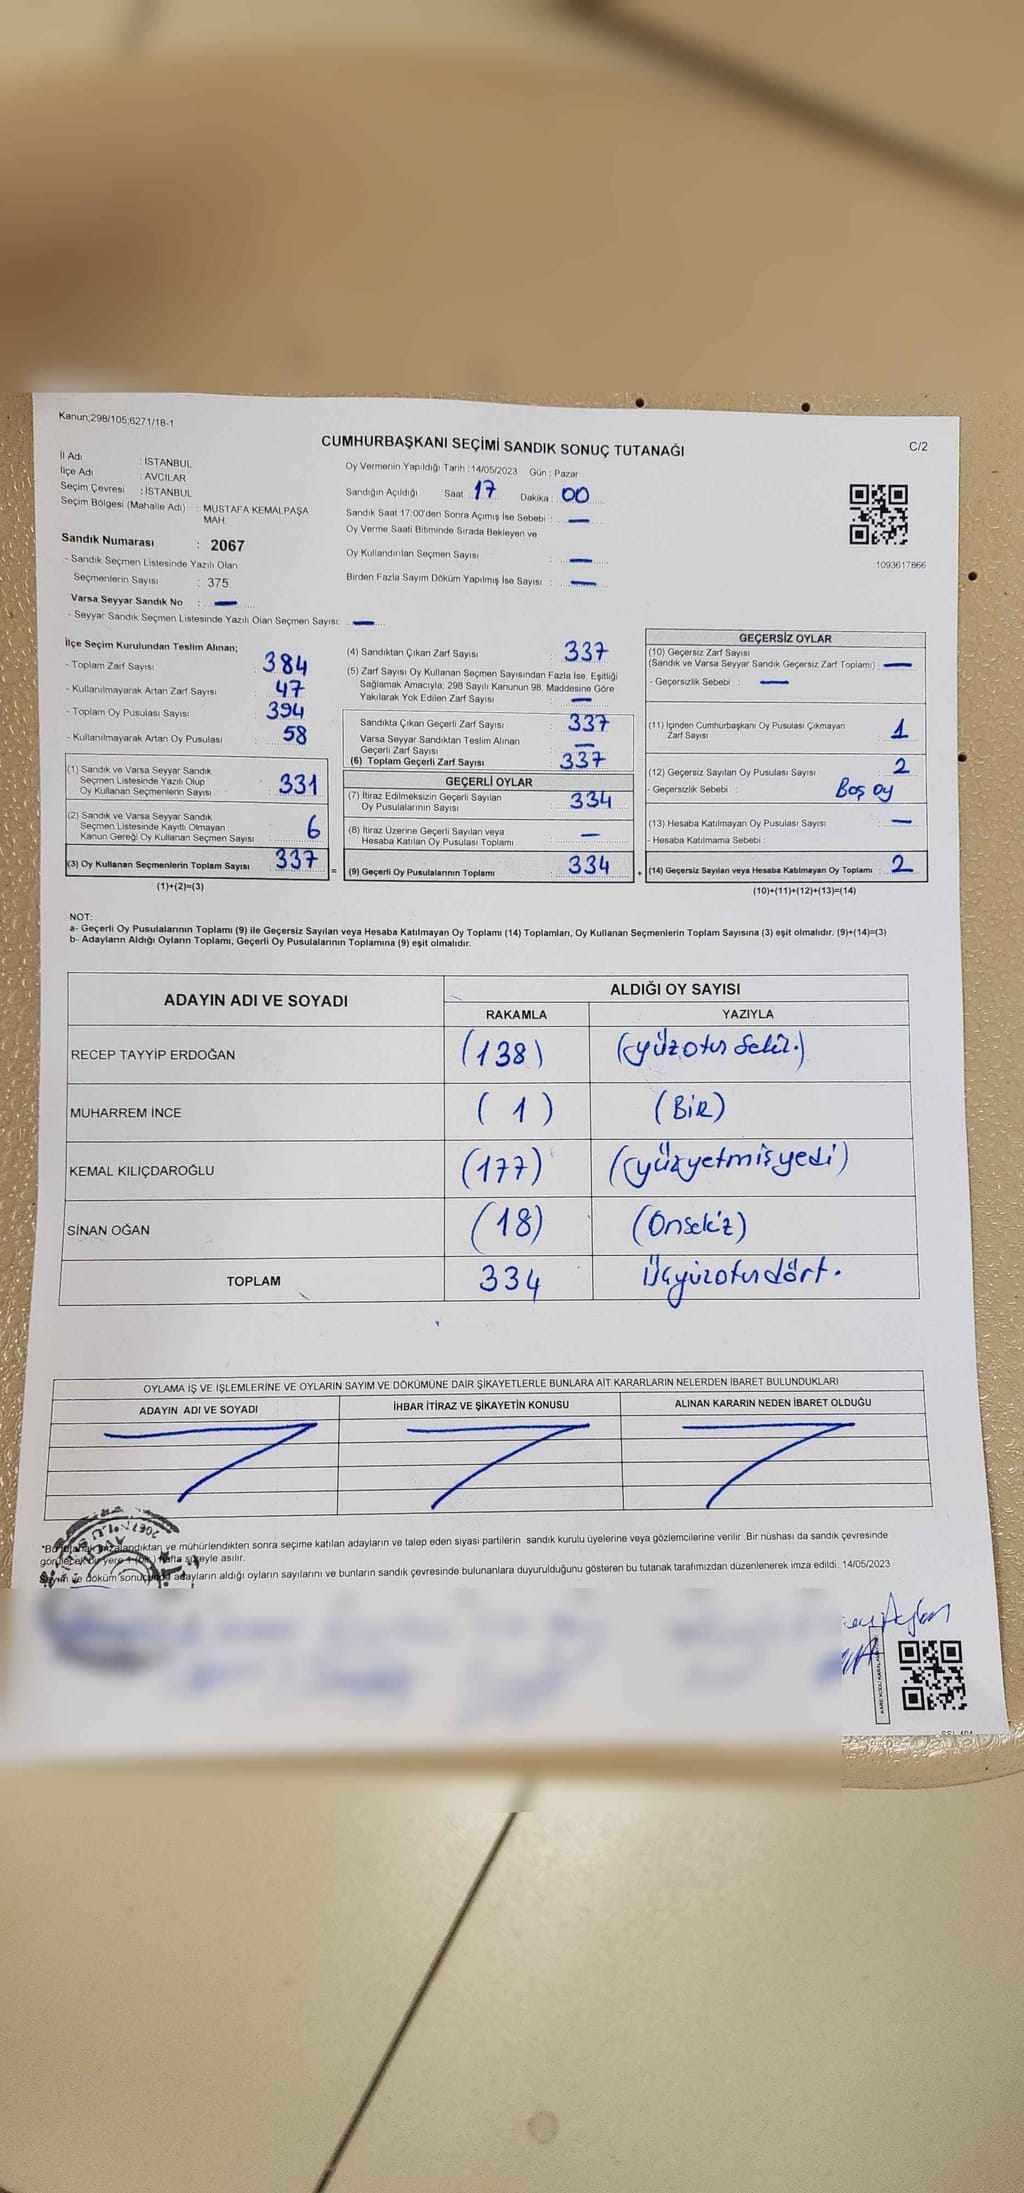 Kanun;298/105;6271/18-1
CUMHURBAŞKANI SEÇİMİ SANDIK SONUÇ TUTANAĞI
C/2
İl Adı : İSTANBUL
İlçe Adı : AVCILAR
Seçim Çevresi : İSTANBUL
Seçim Bölgesi (Mahalle Adı) : MUSTAFA KEMALPAŞA
MAH.
Sandık Numarası : 2067
- Sandık Seçmen Listesinde Yazılı Olan
Seçmenlerin Sayısı : 375
Varsa Seyyar Sandık No : —
- Seyyar Sandık Seçmen Listesinde Yazılı Olan Seçmen Sayısı: —
Oy Vermenin Yapıldığı Tarih :14/05/2023 Gün : Pazar
Sandığın Açıldığı Saat : 17 Dakika : 00
Sandık Saat 17:00'den Sonra Açımış İse Sebebi : —
Oy Verme Saati Bitiminde Sırada Bekleyen ve
Oy Kullandırılan Seçmen Sayısı : —
Birden Fazla Sayım Döküm Yapılmış İse Sayısı : —
1093617866
İlçe Seçim Kurulundan Teslim Alınan;
- Toplam Zarf Sayısı : 384
- Kullanılmayarak Artan Zarf Sayısı : 47
- Toplam Oy Pusulası Sayısı : 394
- Kullanılmayarak Artan Oy Pusulası : 58
(1) Sandık ve Varsa Seyyar Sandık
Seçmen Listesinde Yazılı Olup
Oy Kullanan Seçmenlerin Sayısı : 331
(2) Sandık ve Varsa Seyyar Sandık
Seçmen Listesinde Kayıtlı Olmayan
Kanun Gereği Oy Kullanan Seçmen Sayısı : 6
(3) Oy Kullanan Seçmenlerin Toplam Sayısı : 337
(1)+(2)=(3)
(4) Sandıktan Çıkan Zarf Sayısı : 337
(5) Zarf Sayısı Oy Kullanan Seçmen Sayısından Fazla İse, Eşitliği
Sağlamak Amacıyla; 298 Sayılı Kanunun 98. Maddesine Göre
Yakılarak Yok Edilen Zarf Sayısı : —
Sandıkta Çıkan Geçerli Zarf Sayısı : 337
Varsa Seyyar Sandıktan Teslim Alınan
Geçerli Zarf Sayısı : —
(6) Toplam Geçerli Zarf Sayısı : 337
GEÇERLİ OYLAR
(7) İtiraz Edilmeksizin Geçerli Sayılan
Oy Pusulalarının Sayısı : 334
(8) İtiraz Üzerine Geçerli Sayılan veya
Hesaba Katılan Oy Pusulası Toplamı : —
= (9) Geçerli Oy Pusulalarının Toplamı : 334
GEÇERSİZ OYLAR
(10) Geçersiz Zarf Sayısı
(Sandık ve Varsa Seyyar Sandık Geçersiz Zarf Toplamı) : —
- Geçersizlik Sebebi : —
(11) İçinden Cumhurbaşkanı Oy Pusulası Çıkmayan
Zarf Sayısı : 1
(12) Geçersiz Sayılan Oy Pusulası Sayısı : 2
- Geçersizlik Sebebi : Boş oy
(13) Hesaba Katılmayan Oy Pusulası Sayısı : —
- Hesaba Katılmama Sebebi :
+ (14) Geçersiz Sayılan veya Hesaba Katılmayan Oy Toplamı : 2
(10)+(11)+(12)+(13)=(14)
NOT:
a- Geçerli Oy Pusulalarının Toplamı (9) ile Geçersiz Sayılan veya Hesaba Katılmayan Oy Toplamı (14) Toplamları, Oy Kullanan Seçmenlerin Toplam Sayısına (3) eşit olmalıdır. (9)+(14)=(3)
b- Adayların Aldığı Oyların Toplamı, Geçerli Oy Pusulalarının Toplamına (9) eşit olmalıdır.
ADAYIN ADI VE SOYADI ALDIĞI OY SAYISI
RAKAMLA YAZIYLA
RECEP TAYYİP ERDOĞAN (138) (yüzotuz sekiz.)
MUHARREM İNCE (1) (BİR)
KEMAL KILIÇDAROĞLU (177) (yüzyetmişyedi)
SİNAN OĞAN (18) (Onsekiz)
TOPLAM 334 Üçyüzotuzdört.
OYLAMA İŞ VE İŞLEMLERİNE VE OYLARIN SAYIM VE DÖKÜMÜNE DAİR ŞİKAYETLERLE BUNLARA AİT KARARLARIN NELERDEN İBARET BULUNDUKLARI
ADAYIN ADI VE SOYADI İHBAR İTİRAZ VE ŞİKAYETİN KONUSU ALINAN KARARIN NEDEN İBARET OLDUĞU
*Bu tutanak imzalandıktan ve mühürlendikten sonra seçime katılan adayların ve talep eden siyasi partilerin sandık kurulu üyelerine veya gözlemcilerine verilir .Bir nüshası da sandık çevresinde
görülecek bir yere 1 (bir ) hafta süreyle asılır.
Sayım ve döküm sonucunda adayların aldığı oyların sayılarını ve bunların sandık çevresinde bulunanlara duyurulduğunu gösteren bu tutanak tarafımızdan düzenlenerek imza edildi. 14/05/2023